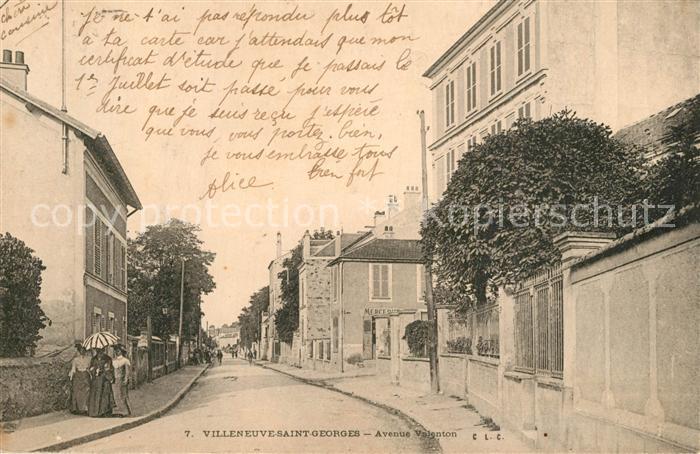 Cher
cousine
Je ne t'ai pas répondu plus tôt
à ta carte car j'attendais que mon
certificat d'étude que je passais le
1er Juillet soit passé pour vous
dire que je suis reçu j'espère
que vous, vous portez bien,
je vous embrasse tous
bien fort
Alice
copyright protection by Kartenplanet & Ansichtskartenversand
MERCERIE
7. VILLENEUVE-SAINT-GEORGES — Avenue Valenton
C.L.C.